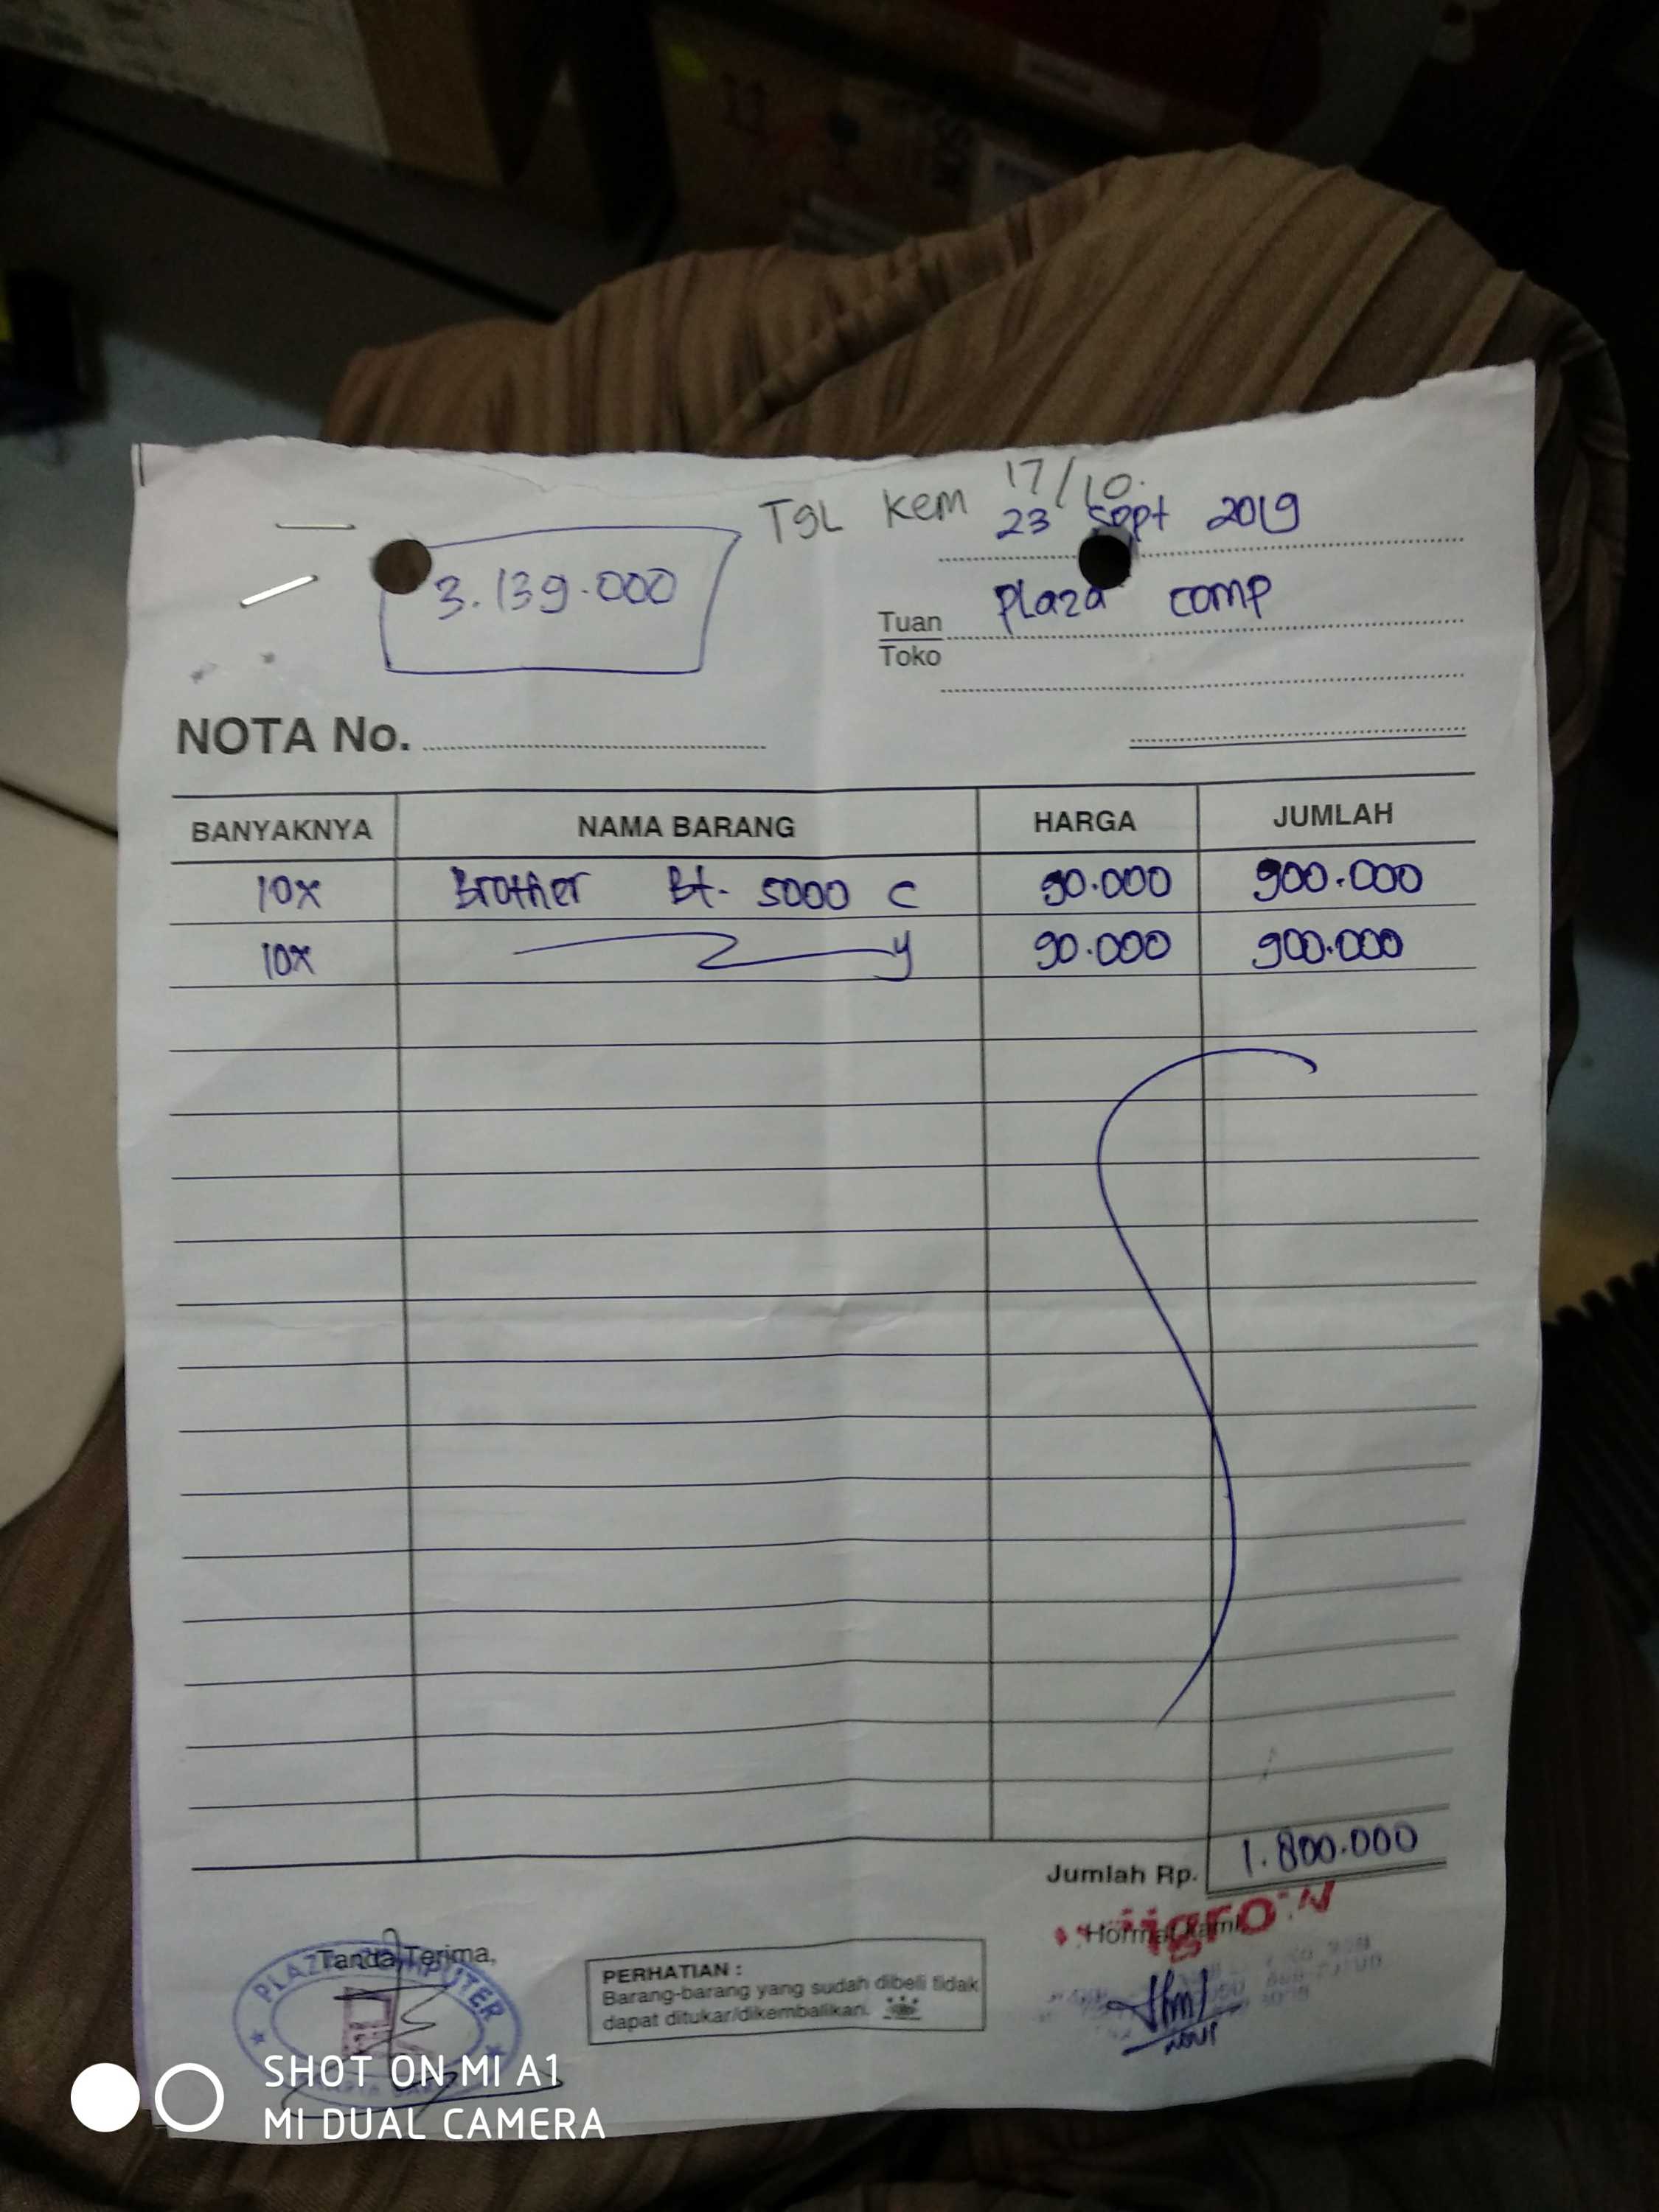 Tgl Kem 17/10.
23 Sept 2019
3.139.000
Tuan Plaza comp
Toko
NOTA No.
BANYAKNYA NAMA BARANG HARGA JUMLAH
10x Brother Bt- 5000 C 90.000 900.000
10x y 90.000 900.000
Jumlah Rp. 1.800.000
Tanda Terima,
PLAZA COMPUTER
PERHATIAN :
Barang-barang yang sudah dibeli tidak
dapat ditukar/dikembalikan.
Hormat kami
SHOT ON MI A1
MI DUAL CAMERA